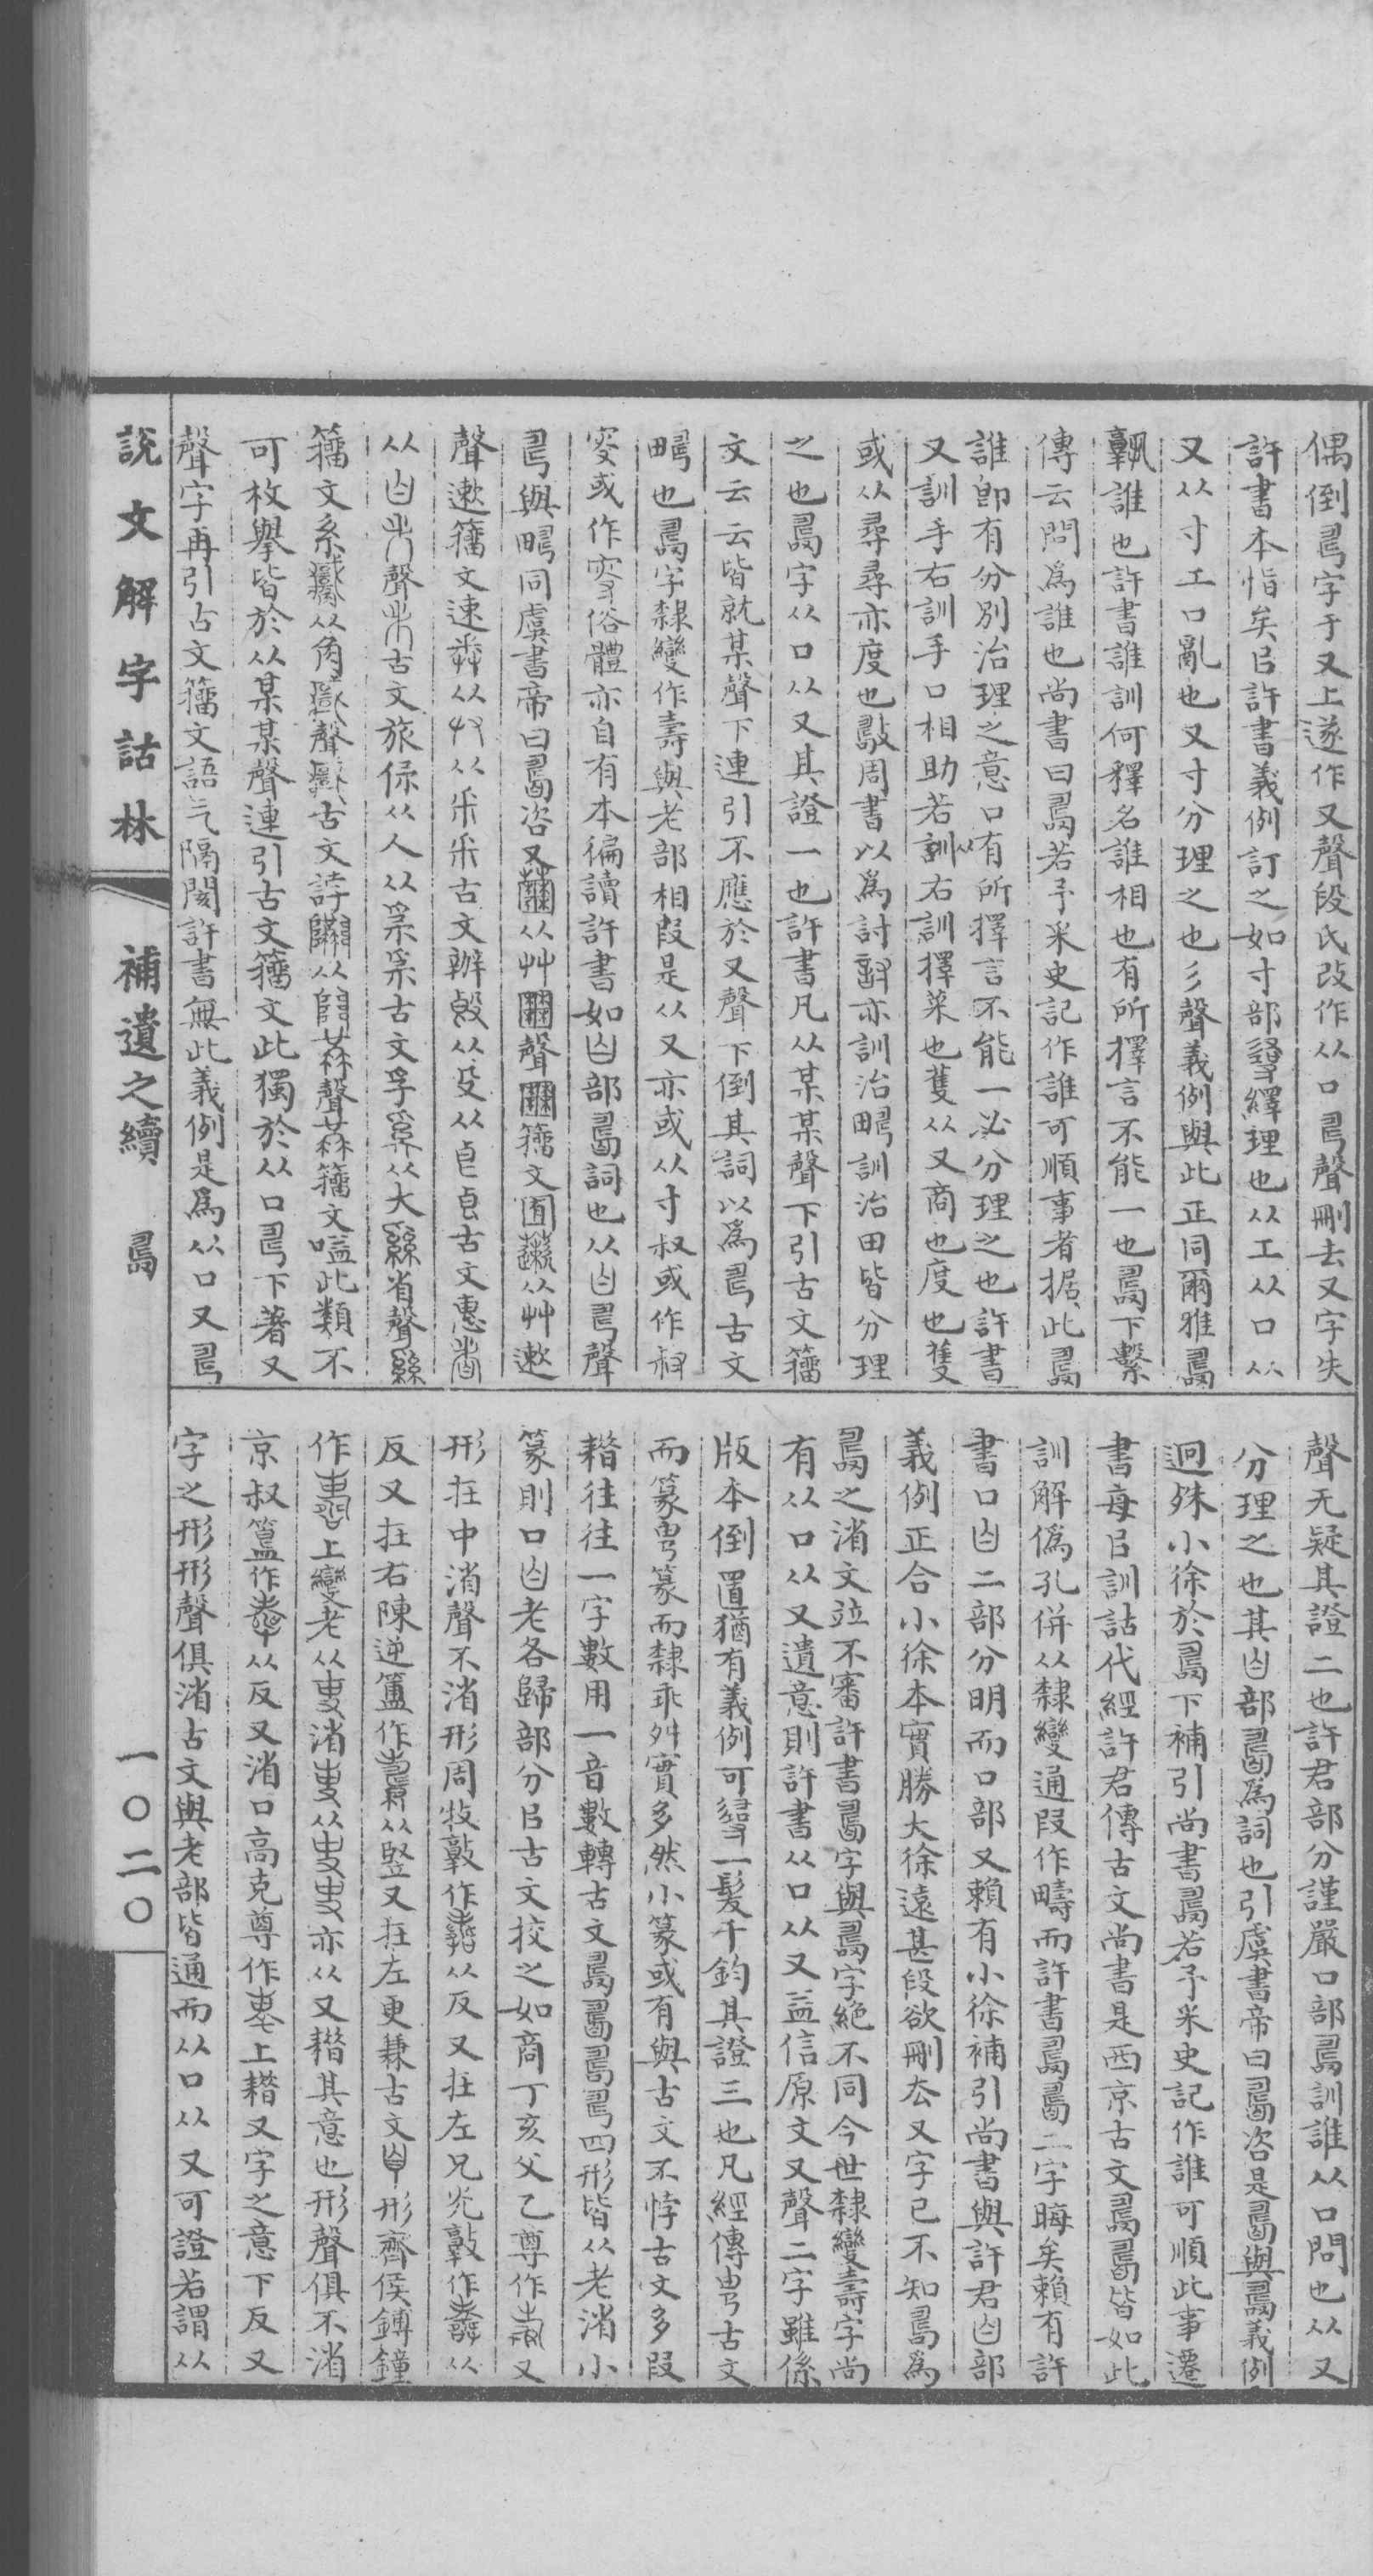 偶倒𠃬字于又上遂作又聲段氏改作从口𠃬聲刪去又字失
許書本恉矣㠯許書義例訂之如寸部𢒫繹理也从工从口从
又从寸工口亂也又寸分理之也彡聲義例與此正同爾雅𠷎
誰也許書誰訓何釋名誰相也有所擇言不能一也𠷎下繫
傳云問爲誰也尚書曰𠷎若予采史記作誰可順事者据此𠷎
誰卽有分別治理之意口有所擇言不能一必分理之也許書
又訓手右訓手口相助若訓右訓擇菜也蒦从又商也度也隻
或从尋尋亦度也敽周書以爲討亦訓治𤲮訓治田皆分理
之也𠷎字从口从又其證一也許書凡从某某聲下引古文籒
文云云皆就某聲下連引不應於又聲下倒其詞以爲𠃬古文
𤲮也𠷎字隸變作壽與老部相叚是从又亦或从寸叔或作𡬧
叜或作俗體亦自有本徧讀許書如𦣹部𠷎詞也从𦣹𠃬聲
𠃬與𤲮同虞書帝曰𠷎咨又从艸聲籒文囿从艸遬
聲遬籒文速从从釆釆古文辦㲃从殳从皀皀古文惠
从𦣹聲古文旅保从人从𤓽𤓽古文孚从大省聲
籒文系从角聲古文誖从聲籒文嗌此類不
可枚擧皆於从某某聲連引古文籒文此獨於从口𠃬下著又
聲字再引古文籒文語气隔閡許書無此義例是爲从口又𠃬
聲无疑其證二也許君部分謹嚴口部𠷎訓誰从口問也从又
分理之也其𦣹部𠷎爲詞也引虞書帝曰𠷎咨是𠷎與𠷎義例
迥殊小徐於𠷎下補引尚書𠷎若予采史記作誰可順此事遷
書每㠯訓詁代經許君傳古文尚書是西京古文𠷎𠷎皆如此
訓解僞孔併从隸變通叚作疇而許書𠷎𠷎二字晦矣賴有許
書口𦣹二部分明而口部又賴有小徐補引尚書與許君𦣹部
義例正合小徐本實勝大徐遠甚段欲刪厺又字已不知𠷎爲
𠷎之渻文竝不審許書𠷎字與𠷎字絶不同今世隸變壽字尚
有从口从又遺意則許書从口从又益信原文又聲二字雖係
版本倒置猶有義例可𢒫一髮千鈞其證三也凡經傳古文
而篆篆而隸乖舛實多然小篆或有與古文不悖古文多叚
𦻏往往一字數用一音數轉古文𠷎𠷎𠷎𠃬四形皆从老渻小
篆則口𦣹老各歸部分㠯古文挍之如商丁亥父乙尊作又
形在中渻聲不渻形周牧敦作从反又在左兄𡯐敦作从
反又在右陳逆簠作从竪又在左更兼古文形齊侯鎛鐘
作上變老从渻从亦从又𦻏其意也形聲俱不渻
京叔簋作从反又渻口高克尊作上𦻏又字之意下反又
字之形形聲俱渻古文與老部皆通而从口从又可證若謂从
說文解字詁林 補遺之續 𠷎 一〇二〇